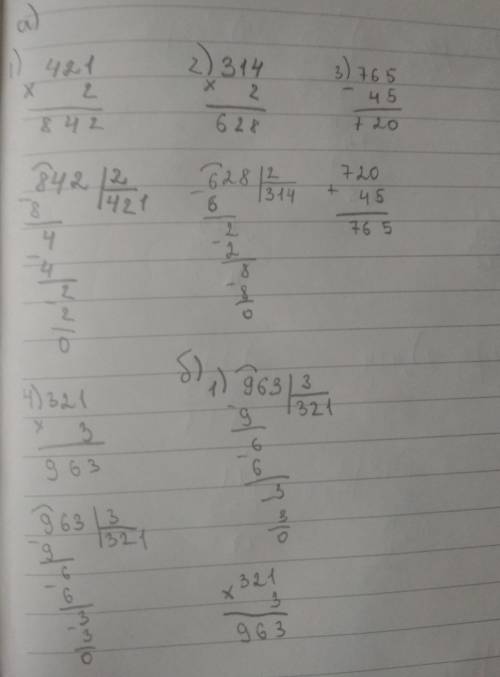 а)
1) 421
× 2
842
842 | 2
421
-8
4
-4
2
-2
0
2) 314
× 2
628
-628 | 2
314
6
2
-2
8
-8
0
3) 765
- 45
720
720
+ 45
765
4) 321
× 3
963
-963 | 3
321
9
6
-6
3
-3
0
б)
1) 963 | 3
321
-9
6
-6
3
3
0
321
× 3
963